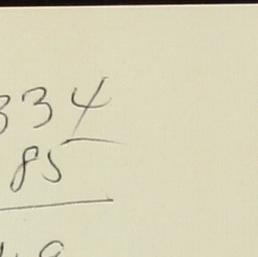 334
85